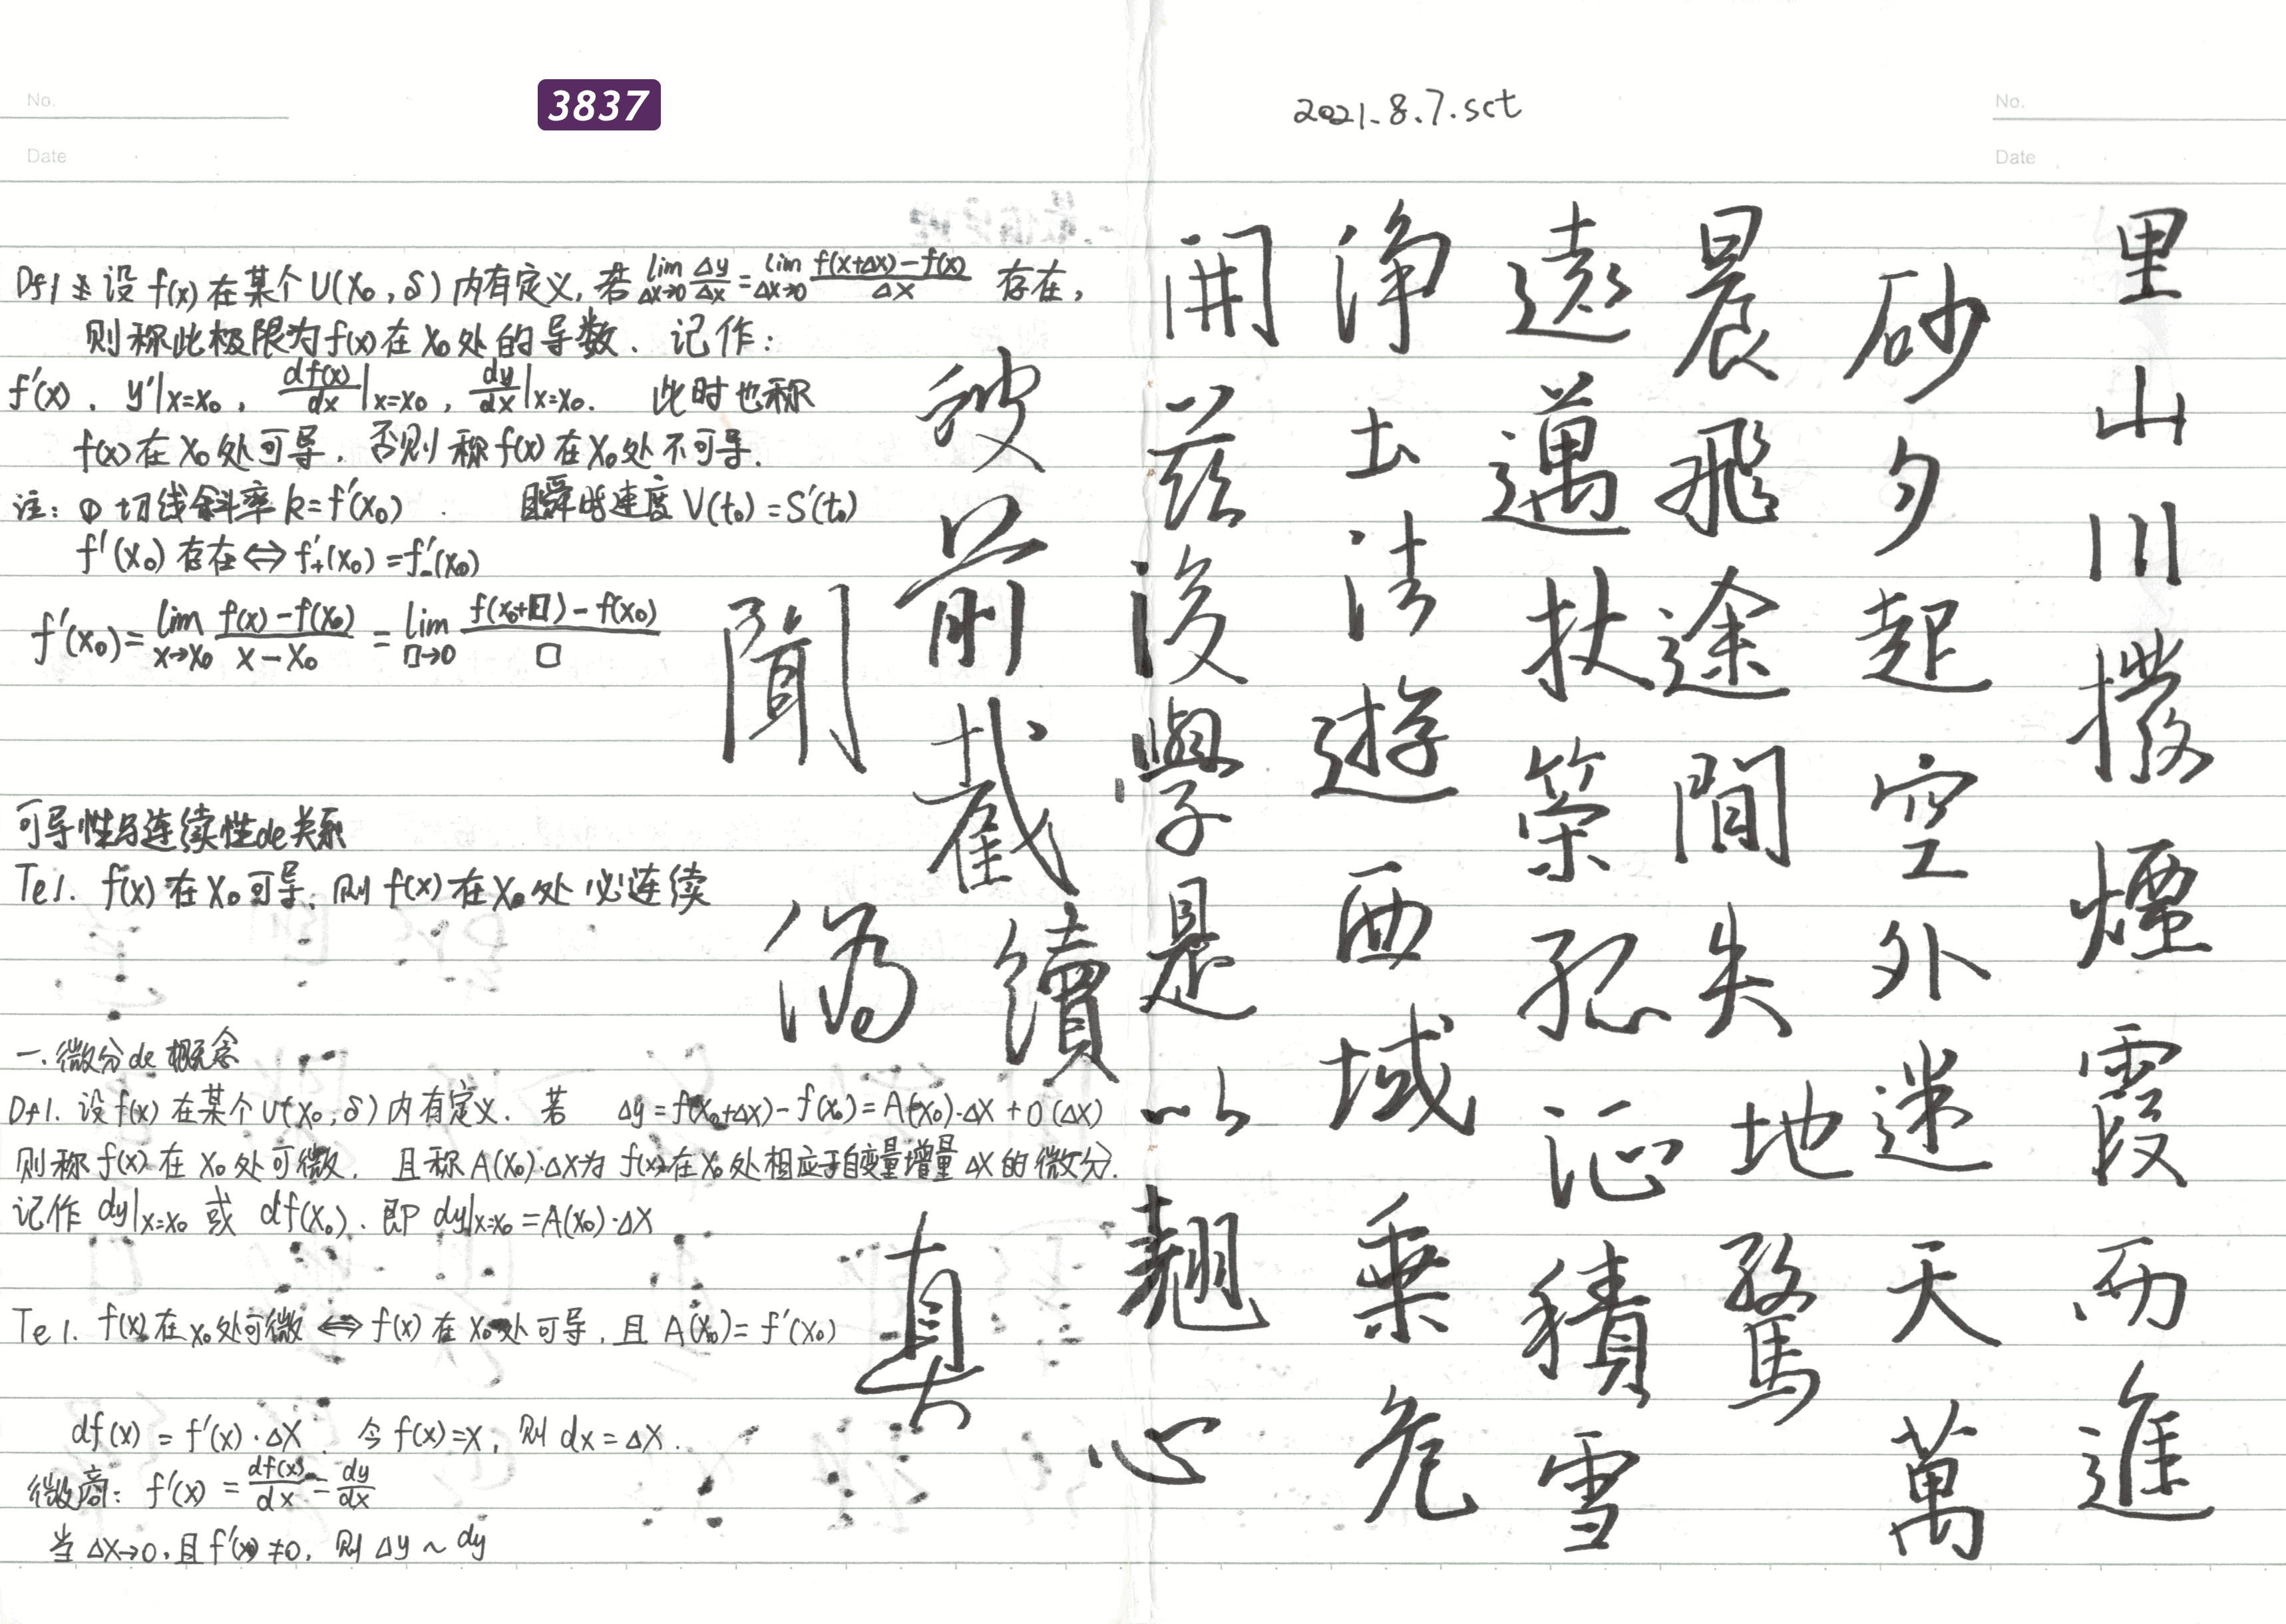 3837
2021.8.7.sct
No.
Date
No.
Date
Df1 设 f(x) 在某个 U(x₀, δ) 内有定义, 若 lim Δx→0 Δy/Δx = lim Δx→0 (f(x+Δx)-f(x))/Δx 存在,
则称此极限为 f(x) 在 x₀ 处的导数. 记作:
f'(x), y'|x=x₀, df(x)/dx|x=x₀, dy/dx|x=x₀. 此时也称
f(x) 在 x₀ 处可导, 否则称 f(x) 在 x₀ 处不可导.
注: ① 切线斜率 k=f'(x₀). 且瞬时速度 V(t₀)=S'(t₀)
f'(x₀) 存在 ⇔ f'₊(x₀)=f'₋(x₀)
f'(x₀)= lim x→x₀ (f(x)-f(x₀))/(x-x₀) = lim □→0 (f(x₀+□)-f(x₀))/□
可导性与连续性de关系
Te1. f(x) 在 x₀ 可导, 则 f(x) 在 x₀ 处必连续
一. 微分de概念
Df1. 设 f(x) 在某个 U(x₀, δ) 内有定义. 若 Δy=f(x₀+Δx)-f(x₀)=A(x₀)·Δx+o(Δx)
则称 f(x) 在 x₀ 处可微, 且称 A(x₀)·Δx为 f(x) 在 x₀ 处相应于自变量增量 Δx 的微分.
记作 dy|x=x₀ 或 df(x₀). 即 dy|x=x₀=A(x₀)·Δx
Te1. f(x) 在 x₀ 处可微 ⇔ f(x) 在 x₀ 处可导, 且 A(x₀)=f'(x₀)
df(x) = f'(x)·Δx. 令 f(x)=x, 则 dx=Δx.
微商: f'(x) = df(x)/dx = dy/dx
当 Δx→0, 且 f'(x)≠0, 则 Δy ~ dy
里山川撥煙霞而進
砂夕起空外迷天萬
晨飛途間失地驚
遠邁杖策孤征積雪
淨土法遊西域乘危
開茲後學是以翹心
彼前截續
聞偽真